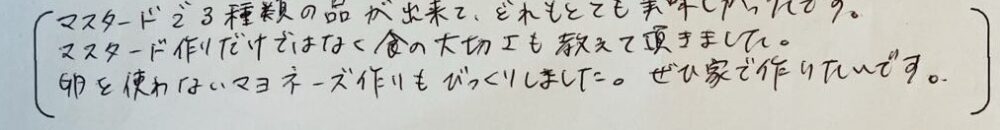 マスタードで3種類の品が出来て、どれもとても美味しかったです。
マスタード作りだけではなく食の大切さも教えて頂きました。
卵を使わないマヨネーズ作りもびっくりしました。ぜひ家で作りたいです。